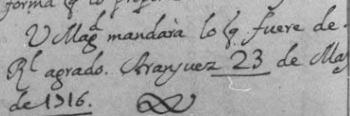 forma q̃ lo
V Mag.d mandarà lo q̃. fuere de.
R.l agrado. Aranjuez 23 de May
de 1716.